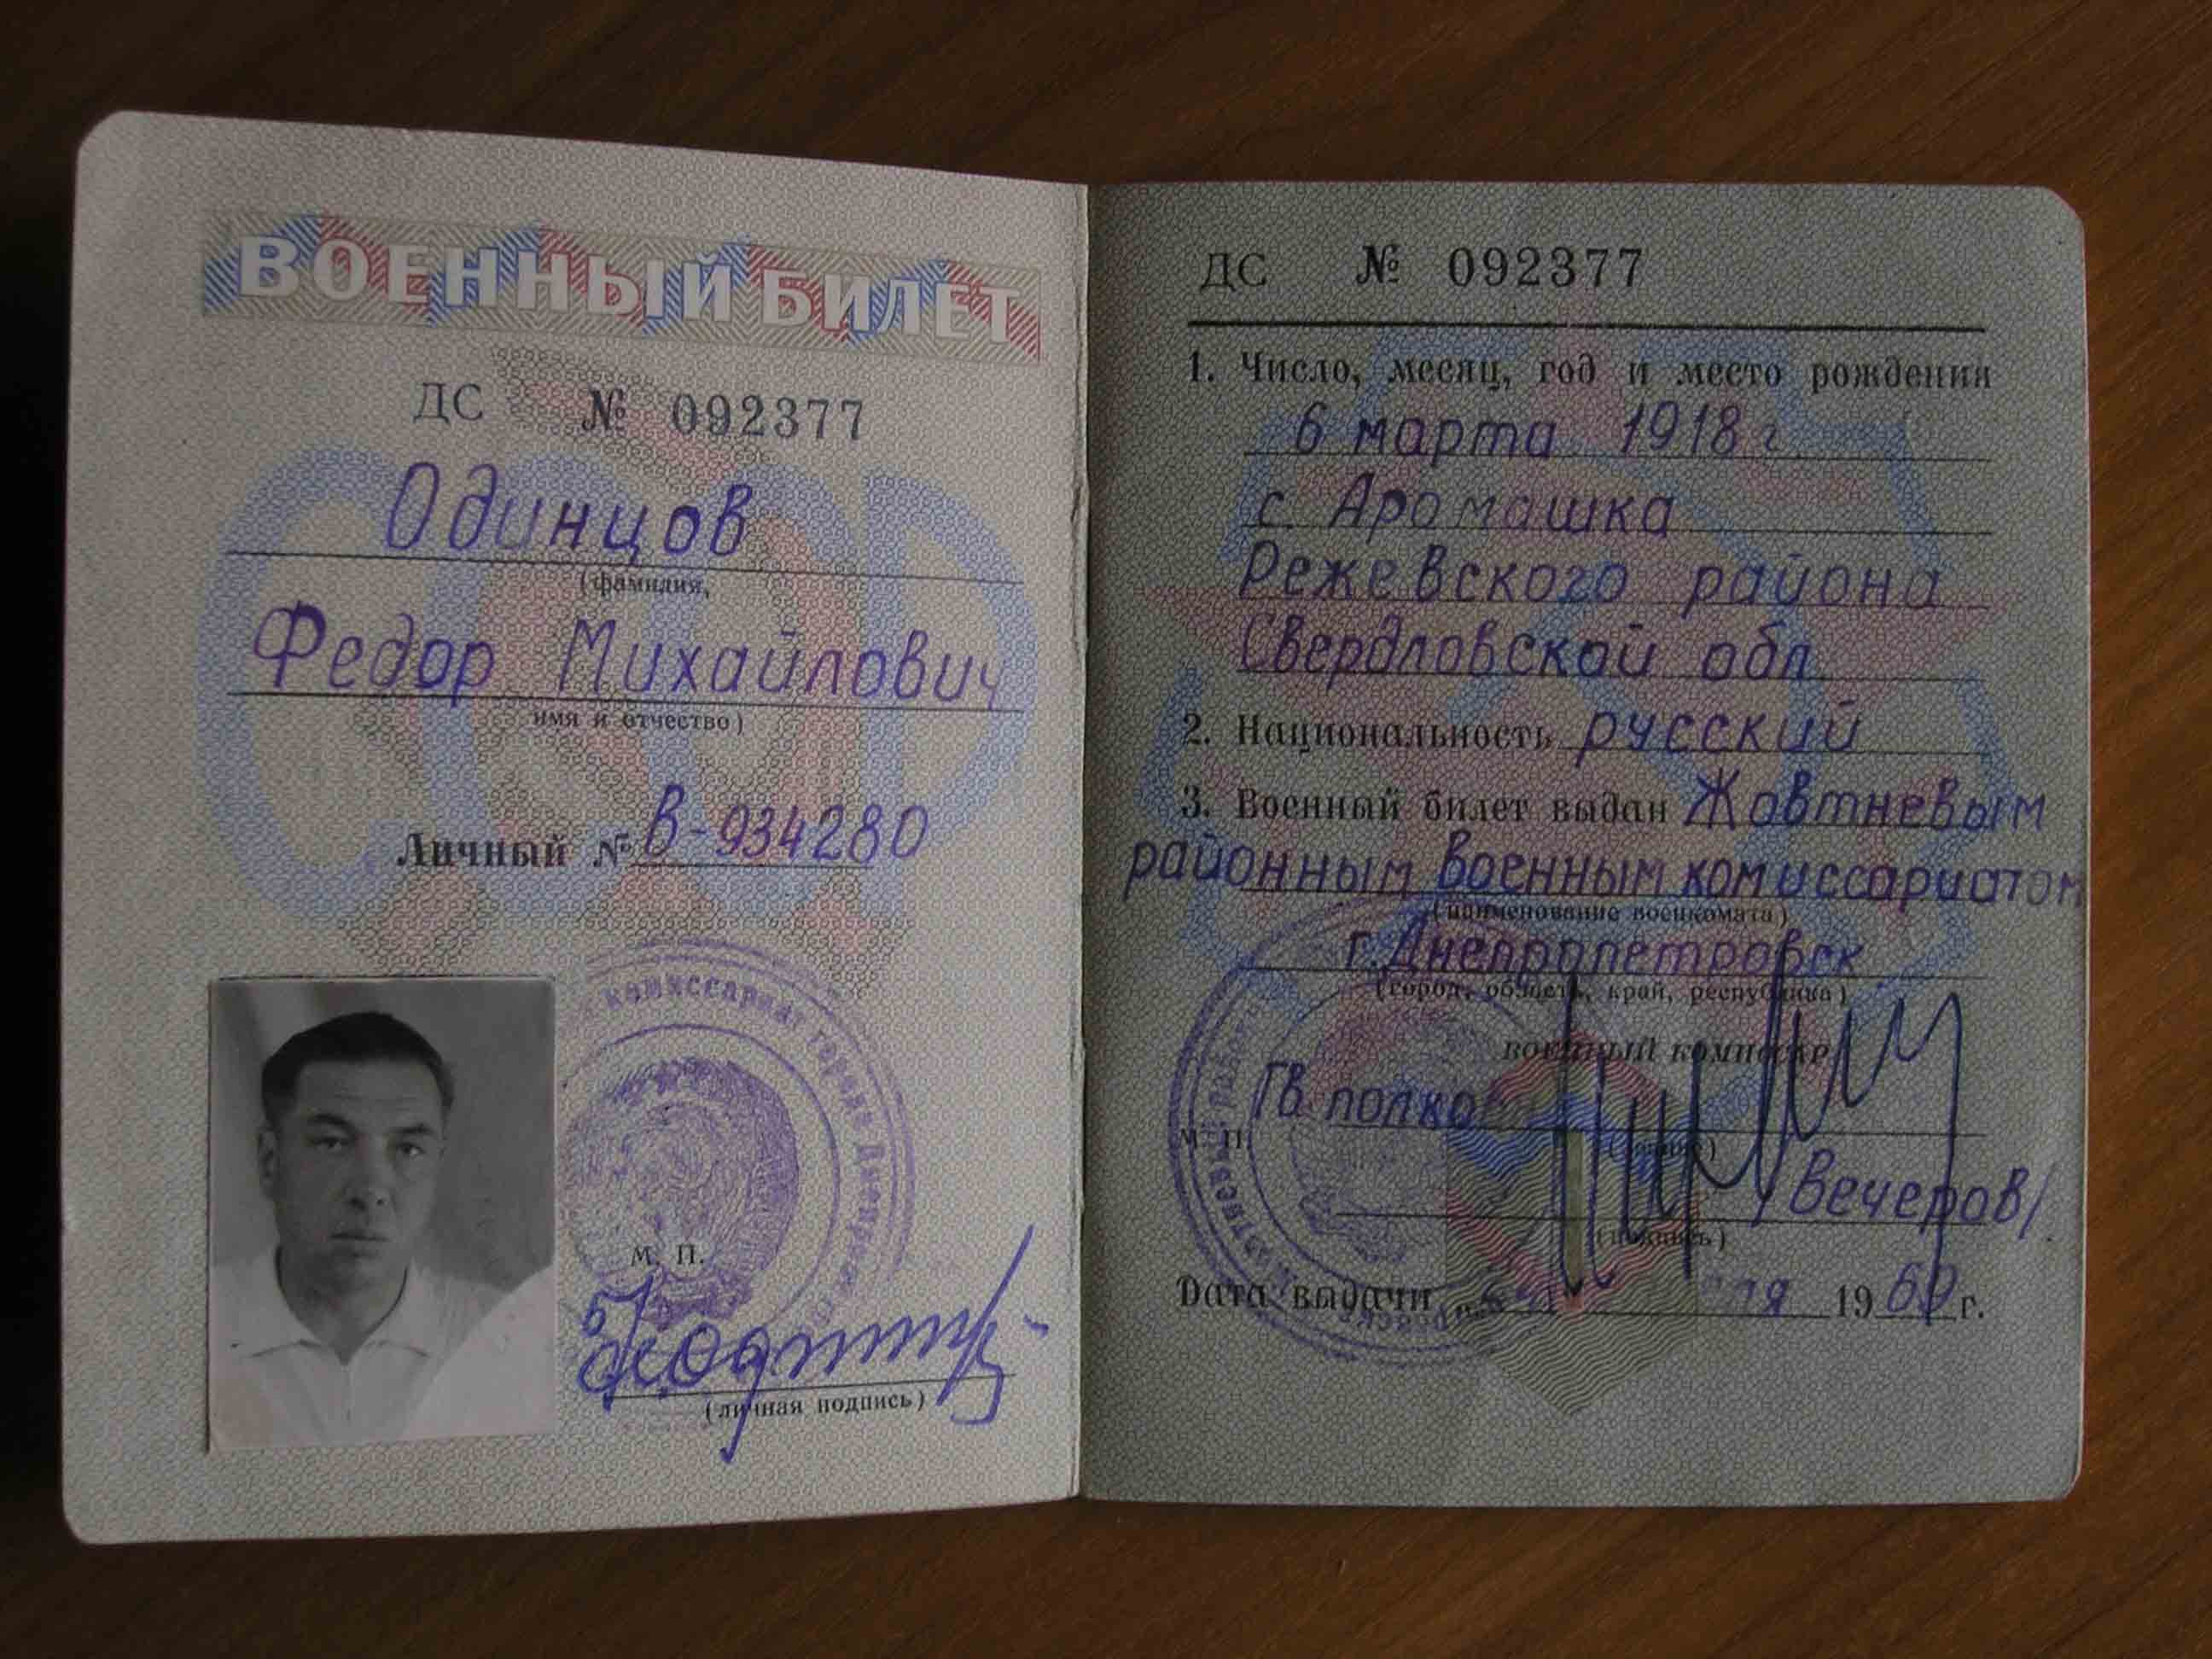 ВОЕННЫЙ БИЛЕТ
ДС № 092377
Одинцов
(фамилия,
Федор Михайлович
имя и отчество)
Личный № В-934280
комиссариат города
М. П.
(личная подпись)
ДС № 092377
1. Число, месяц, год и место рождения
6 марта 1918 г.
с. Аромашка
Режевского района
Свердловской обл
2. Национальность русский
3. Военный билет выдан Жовтневым
районным военным комиссариатом
(наименование военкомата)
г. Днепропетровск
(город, область, край, республика)
ВОЕННЫЙ КОМИССАР
ГВ полко
М. П.
/Вечеров/
(подпись)
Дата выдачи 19 г.